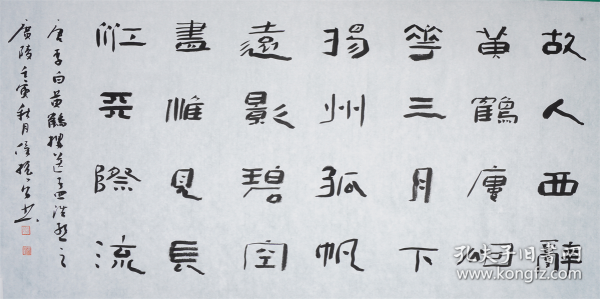 故人西辭
黄鶴廔烟
華三月下
揚州孤帆
遠影碧空
盡惟見長
江天際流
唐李白黄鶴樓送孟浩然之
廣陵壬寅秋月
孔夫子旧書网
www.kongfz.com